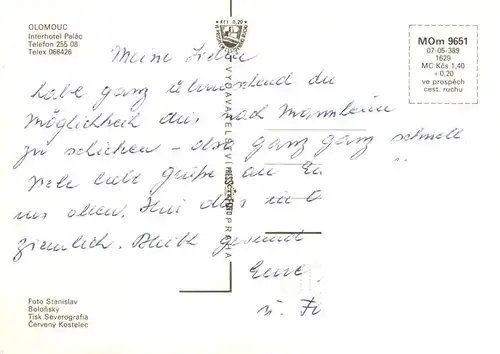 OLOMOUC
Interhotel Palác
Telefon 255 08
Telex 066426
Kčs 0,20
MOm 9651
07-05-389
1629
MC Kčs 1,40
+ 0,20
ve prospěch
cest. ruchu
VYDAVATELSTVÍ PRESSFOTO PRAHA
Meine
habe ganz überraschend die
Möglichkeit dies nach Mannheim
zu schicken – dort ganz ganz schnell
viele liebe Grüße an
uns allen. dies in
ziemlich. Bleibt gesund
Eure
u.
Foto Stanislav
Boloňský
Tisk Severografia
Červený Kostelec